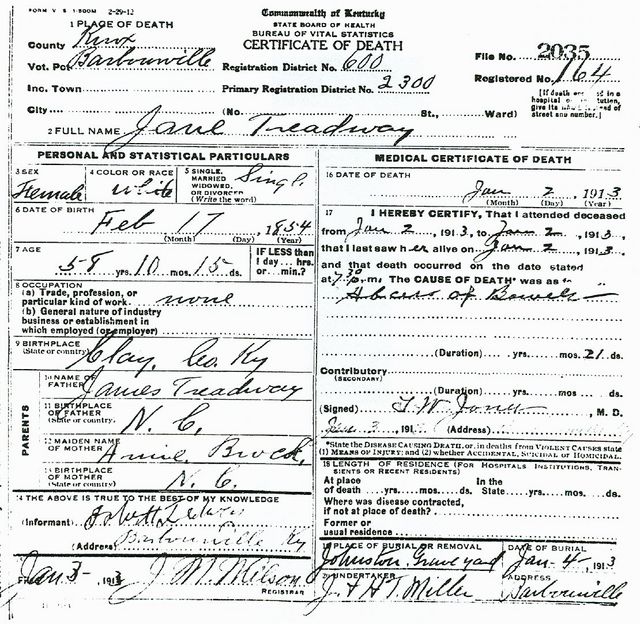 FORM V S 1-500M 2-29-12
Commonwealth of Kentucky
STATE BOARD OF HEALTH
BUREAU OF VITAL STATISTICS
CERTIFICATE OF DEATH
1 PLACE OF DEATH
County Knox
Vot. Pct Barbourville
Inc. Town
City
Registration District No. 600
Primary Registration District No. 2300
(No. St., Ward)
File No. 2035
Registered No. 164
[If death in a
hospital or institution,
give its of
street and number.]
2 FULL NAME Jane Treadway
PERSONAL AND STATISTICAL PARTICULARS
3 SEX
Female
4 COLOR OR RACE
White
5 SINGLE,
MARRIED
WIDOWED,
OR DIVORCED
(Write the word)
Single
6 DATE OF BIRTH
Feb 17, 1854
(Month) (Day) (Year)
7 AGE
58 yrs. 10 mos. 15 ds.
IF LESS than
1 day... hrs.
or... min.?
8 OCCUPATION
(a) Trade, profession, or
particular kind of work. none
(b) General nature of industry
business or establishment in
which employed (or employer)
9 BIRTHPLACE
(State or country) Clay, Co. Ky
PARENTS
10 NAME OF
FATHER James Treadway
11 BIRTHPLACE
OF FATHER
(State or country) N. C.
12 MAIDEN NAME
OF MOTHER Annie Brock
13 BIRTHPLACE
OF MOTHER
(State or country) N. C.
14 THE ABOVE IS TRUE TO THE BEST OF MY KNOWLEDGE
(Informant)
(Address) Barbourville Ky
Jan 3- 1913 J. M. Wilson
REGISTRAR
MEDICAL CERTIFICATE OF DEATH
16 DATE OF DEATH
Jan 2, 1913
(Month) (Day) (Year)
17 I HEREBY CERTIFY, That I attended deceased
from Jan 2, 1913, to Jan 2, 1913,
that I last saw her alive on Jan 2, 1913,
and that death occurred on the date stated
at 7:30 p.m. The CAUSE OF DEATH* was as
Abcess of Bowels
(Duration) yrs. mos. 21 ds.
Contributory
(SECONDARY)
(Duration) yrs. mos. ds.
(Signed) T. W. Jones, M. D.
Jan 3, 191
*State the DISEASE CAUSING DEATH, or, in deaths from VIOLENT CAUSES state
(1) MEANS OF INJURY; and (2) whether ACCIDENTAL, SUICIDAL OR HOMICIDAL.
18 LENGTH OF RESIDENCE (FOR HOSPITALS INSTITUTIONS, TRAN-
SIENTS OR RECENT RESIDENTS)
At place
of death yrs. mos. ds.
In the
State yrs. mos. ds.
Where was disease contracted,
if not at place of death?
Former or
usual residence
19 PLACE OF BURIAL OR REMOVAL
Johnston Grave yard
DATE OF BURIAL
Jan-4-1913
20 UNDERTAKER
J. & H. T. Miller
ADDRESS
Barbourville